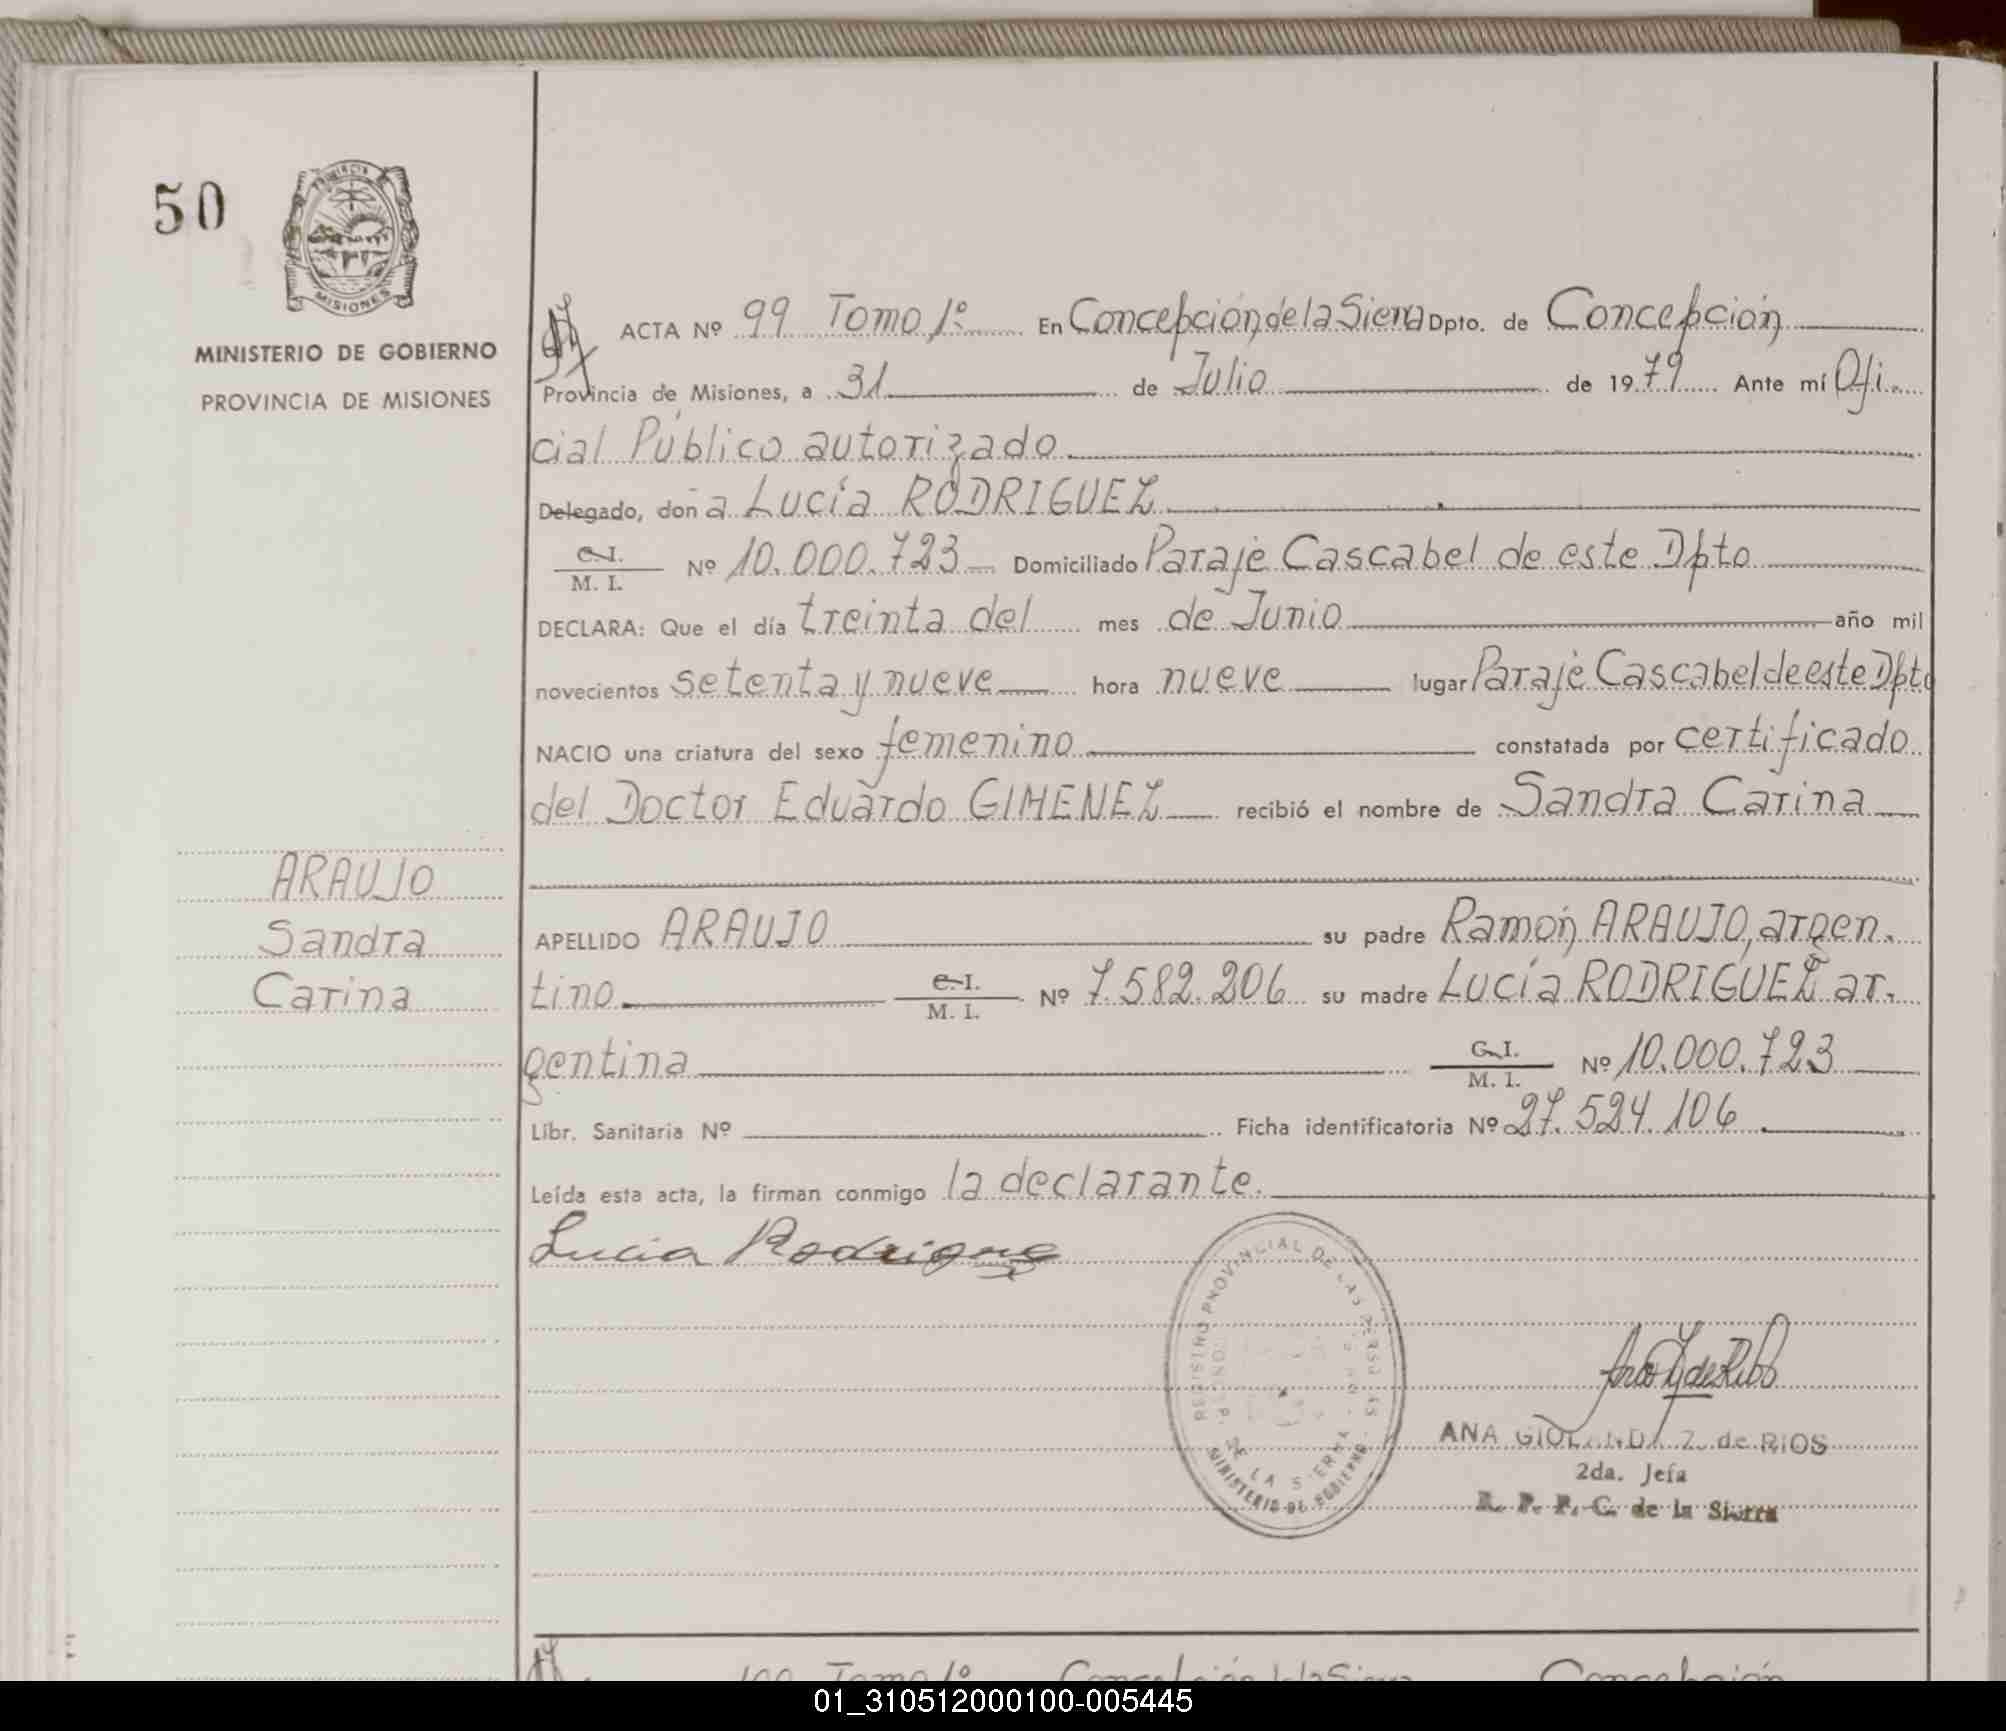 50
PROVINCIA
MISIONES
MINISTERIO DE GOBIERNO
PROVINCIA DE MISIONES
ACTA Nº 99 Tomo 1º En Concepción de la Sierra Dpto. de Concepción
Provincia de Misiones, a 31 de Julio de 1979 Ante mí Ofi.
cial Público autorizado
Delegado, doña Lucía RODRIGUEZ
C.I. M. I. Nº 10.000.723 Domiciliado Paraje Cascabel de este Dpto
DECLARA: Que el día treinta del mes de Junio año mil
novecientos setenta y nueve hora nueve lugar Paraje Cascabel de este Dpto
NACIO una criatura del sexo femenino constatada por certificado
del Doctor Eduardo GIMENEZ recibió el nombre de Sandra Carina
ARAUJO
Sandra
Carina
APELLIDO ARAUJO su padre Ramón ARAUJO, argen.
tino C.I. M. I. Nº 7.582.206 su madre Lucía RODRIGUEZ ar.
gentina C.I. M. I. Nº 10.000.723
Libr. Sanitaria Nº Ficha identificatoria Nº 27.524.106
Leída esta acta, la firman conmigo la declarante.
Lucia Rodriguez
REGISTRO PROVINCIAL DE LAS PERSONAS
DE LA SIERRA
MINISTERIO DE GOBIERNO
ANA GIOLANDA Z. de RIOS
2da. Jefa
R. P. P. C. de la Sierra
100 Tomo 1º Concepción de la Sierra Concepción
01_310512000100-005445